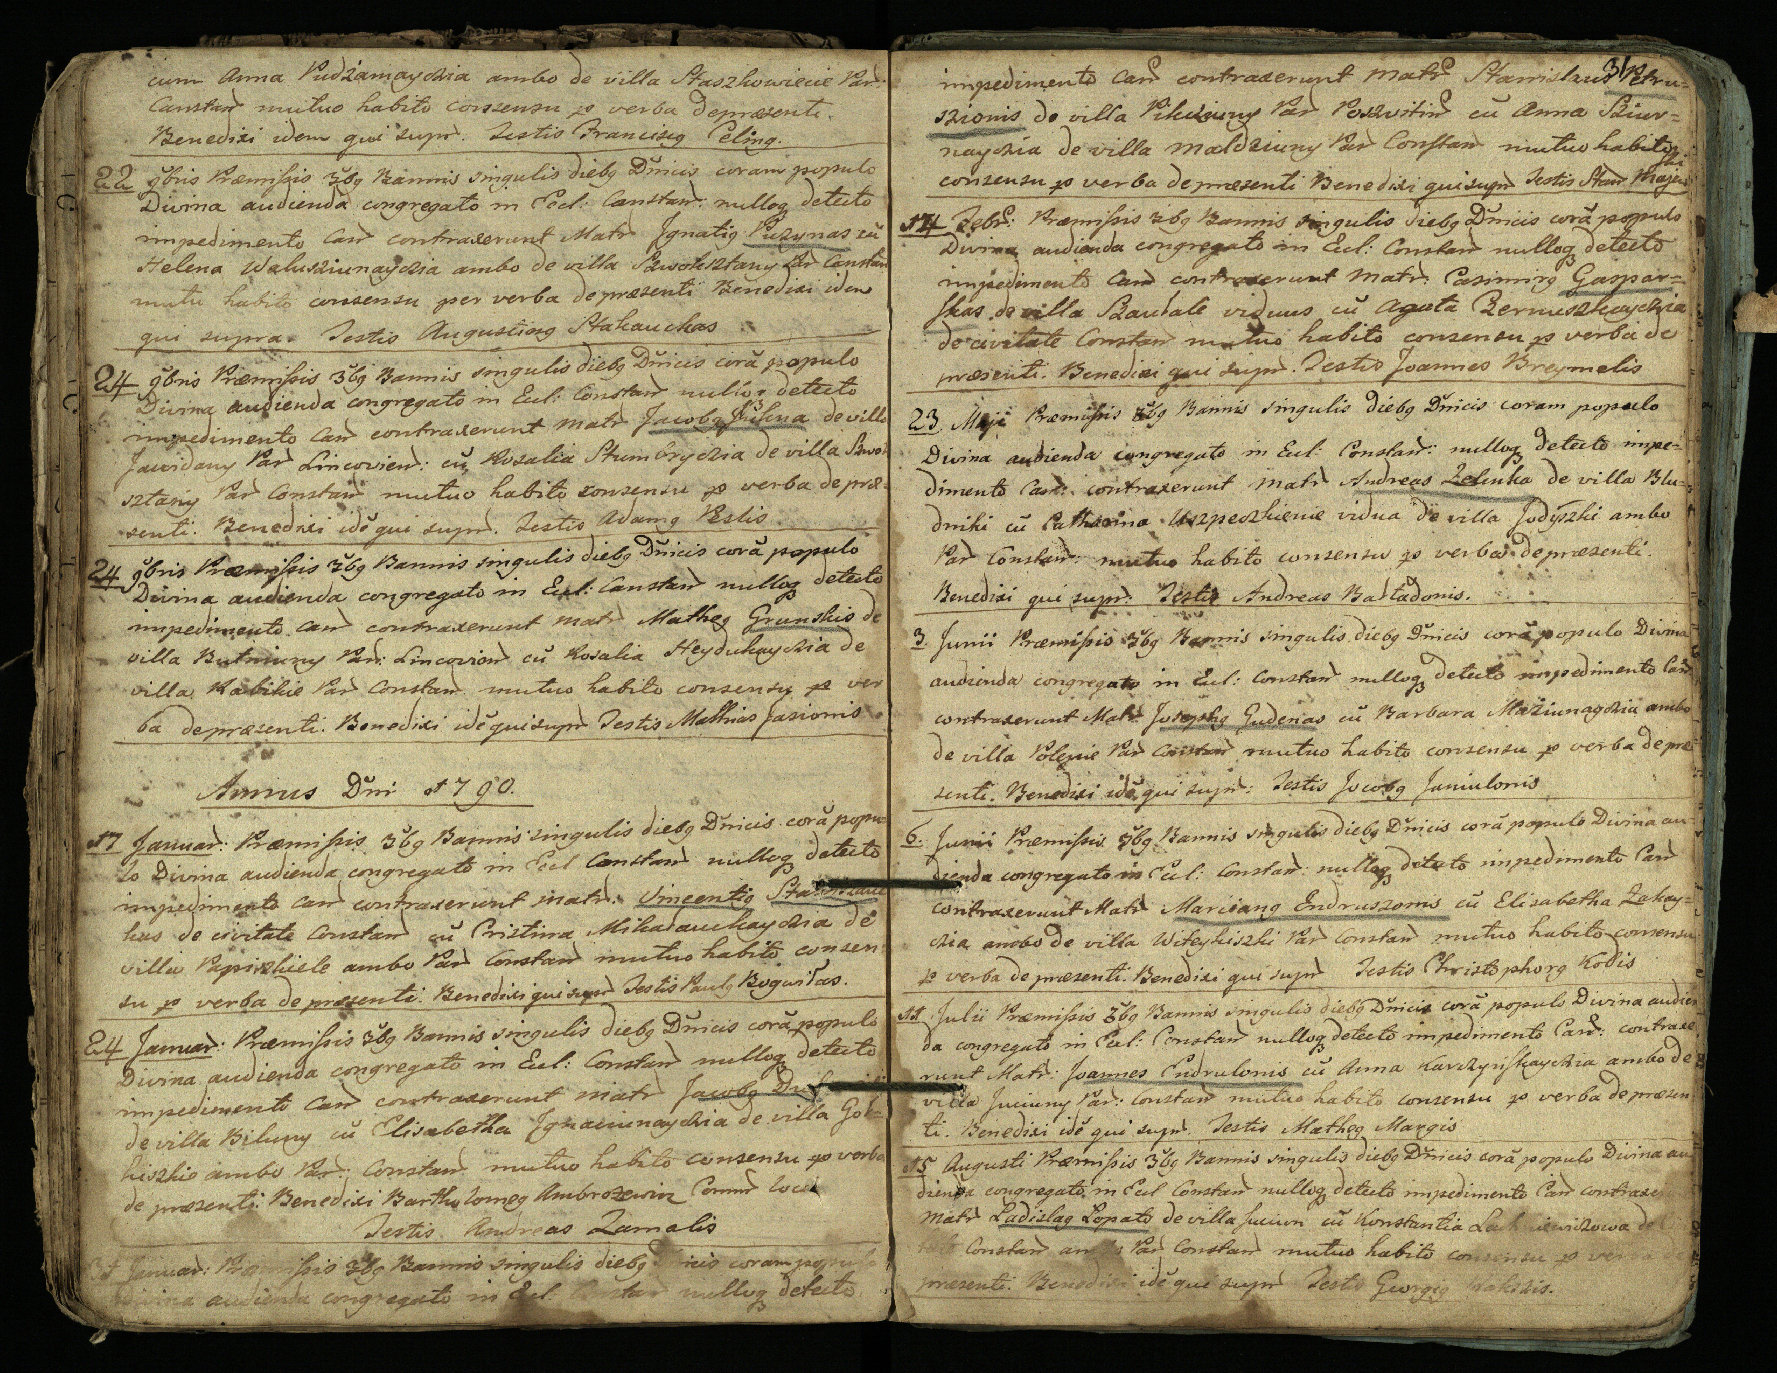 cum Anna Pudziamaychia ambo de villa Staszkowicie Par:
Constan mutuo habito consensu p verba depræsenti.
Benedixi idem qui supr. Testis Franciscg Celing.
22 9bris Præmissis 3bg Bannis singulis diebg Dnicis coram populo
Divina audienda congregato in Eccl: Constan: nullog detecto
impedimento Can contraxerunt Matr Ignatig Puzynas cu
Helena Walusziunaychia ambo de villa Szwoksztany Par Constan
mutu habito consensu per verba depræsenti Benedixi idem
qui supra. Testis Augusting Stakauckas
24 9bris Præmissis 3bg Bannis singulis diebg Dnicis corã populo
Divina audienda congregato in Eccl: Constan nullog detecto
impedimento Can contraxerunt Matr Jacobg de villa
Jawidany Par Lincovien: cũ Rosalia Stumbrychia de villa Szwok
sztany Par Constan mutuo habito consensu p verba depræ-
senti. Benedixi idẽ qui supr. Testis Adamg
24 9bris Præmissis 3bg Bannis singulis diebg Dnicis corã populo
Divina audienda congregato in Eccl: Constan nullog detecto
impedimento Can contraxerunt Matr Matheg Grunskis de
villa Butniuny Par: Lincovien cũ Rosalia Heydukaychia de
villa Kabikie Par Constan mutuo habito consensu p ver
ba depræsenti. Benedixi idẽ qui supr Testis Mathias Jasionis
Annus Dni 1790.
17 Januar: Præmissis 3bg Bannis singulis diebg Dnicis corã popu
lo Divina audienda congregato in Eccl Constan nullog detecto
impedimento Can contraxerunt Matr: Vincentig
kas de civitate Constan cũ Cristina Mikalauckaychia de
villa Papiszkiele ambo Par Constan mutuo habito consen
su p verba de præsenti. Benedixi qui supr Testis Paulg Bogustas.
24 Januar: Præmissis 3bg Bannis singulis diebg Dnicis corã populo
Divina audienda congregato in Eccl: Constan nullog detecto
impedimento Can contraxerunt Matr Jacobg
de villa Biluny cũ Elisabetha Ignaciunaychia de villa Gol-
kiszkie ambo Par: Constan mutuo habito consensu p verba
de præsenti: Benedixi Bartholomeg Ambrozewicz Comm
Testis Andreas Zamalis
Januar: Præmissis 3bg Bannis singulis diebg Dnicis coram populo
Divina audienda congregato in Eccl Constan nullog detecto
31
impedimento Can contraxerunt Matr Stanislaus Petru-
szionis de villa Pikciuny Par Poszwitin cũ Anna Sziur-
naychia de villa Maldziuny Par Constan mutuo habito
consensu p verba depræsenti Benedixi qui supr Testis Stan
14 Febr: Præmissis 3bg Bannis singulis diebg Dnicis corã populo
Divina audienda congregato in Eccl: Constan nullog detecto
impedimento Can contraxerunt Matr: Casimirg Gaspar-
skas de villa Szaudale viduus cũ Agata Bernuszkaychia
de civitate Constan mutuo habito consensu p verba de
præsenti. Benedixi qui supr. Testis Joannes Breymelis
23 Maji Præmissis 3bg Bannis singulis diebg Dnicis coram populo
Divina audienda congregato in Eccl: Constan: nullog detecto impe-
dimento Can: contraxerunt Matr Andreas Zelinka de villa Blu-
dniki cũ Catharina Uszpeczkiene vidua de villa Jodyszki ambo
Par Constan: mutuo habito consensu p verba depræsenti.
Benedixi qui supr: Testis Andreas Baltadonis.
3 Junii Præmissis 3bg Bannis singulis diebg Dnicis corã populo Divina
audienda congregato in Eccl: Constan nullog detecto impedimento Can
contraxerunt Matr Josephg Gudenas cũ Barbara Maziunaychia ambo
de villa Polepie Par Constan mutuo habito consensu p verba de præ
senti. Benedixi idẽ qui supr: Testis Jocobg Janiulonis
6. Junii Præmissis 3bg Bannis singulis diebg Dnicis corã populo Divina au
dienda congregato in Eccl: Constan: nullog detecto impedimento Can
contraxerunt Matr Mariang Endruszonis cũ Elisabetha Zekay-
chia ambo de villa Witeykiszki Par Constan mutuo habito consensu
p verba de præsenti. Benedixi qui supr Testis Christophorg Kodis
11 Julii Præmissis 3bg Bannis singulis diebg Dnicis corã populo Divina audien
da congregato in Eccl: Constan nullog detecto impedimento Can: contraxe
runt Matr: Joannes Endrulonis cũ Anna Karczynskaychia ambo de
villa Juciuny Par: Constan mutuo habito consensu p verba de præsen
ti. Benedixi idẽ qui supr. Testis Matheg Margis
15 Augusti Præmissis 3bg Bannis singulis diebg Dnicis corã populo Divina au
dienda congregato in Eccl Constan nullog detecto impedimento Can contraxe
Matr Ladislag Lopato de villa Juciun cũ Konstantia de
Constan Par Constan mutuo habito consensu p verba
præsenti. Benedixi idẽ qui supr Testis Georgig